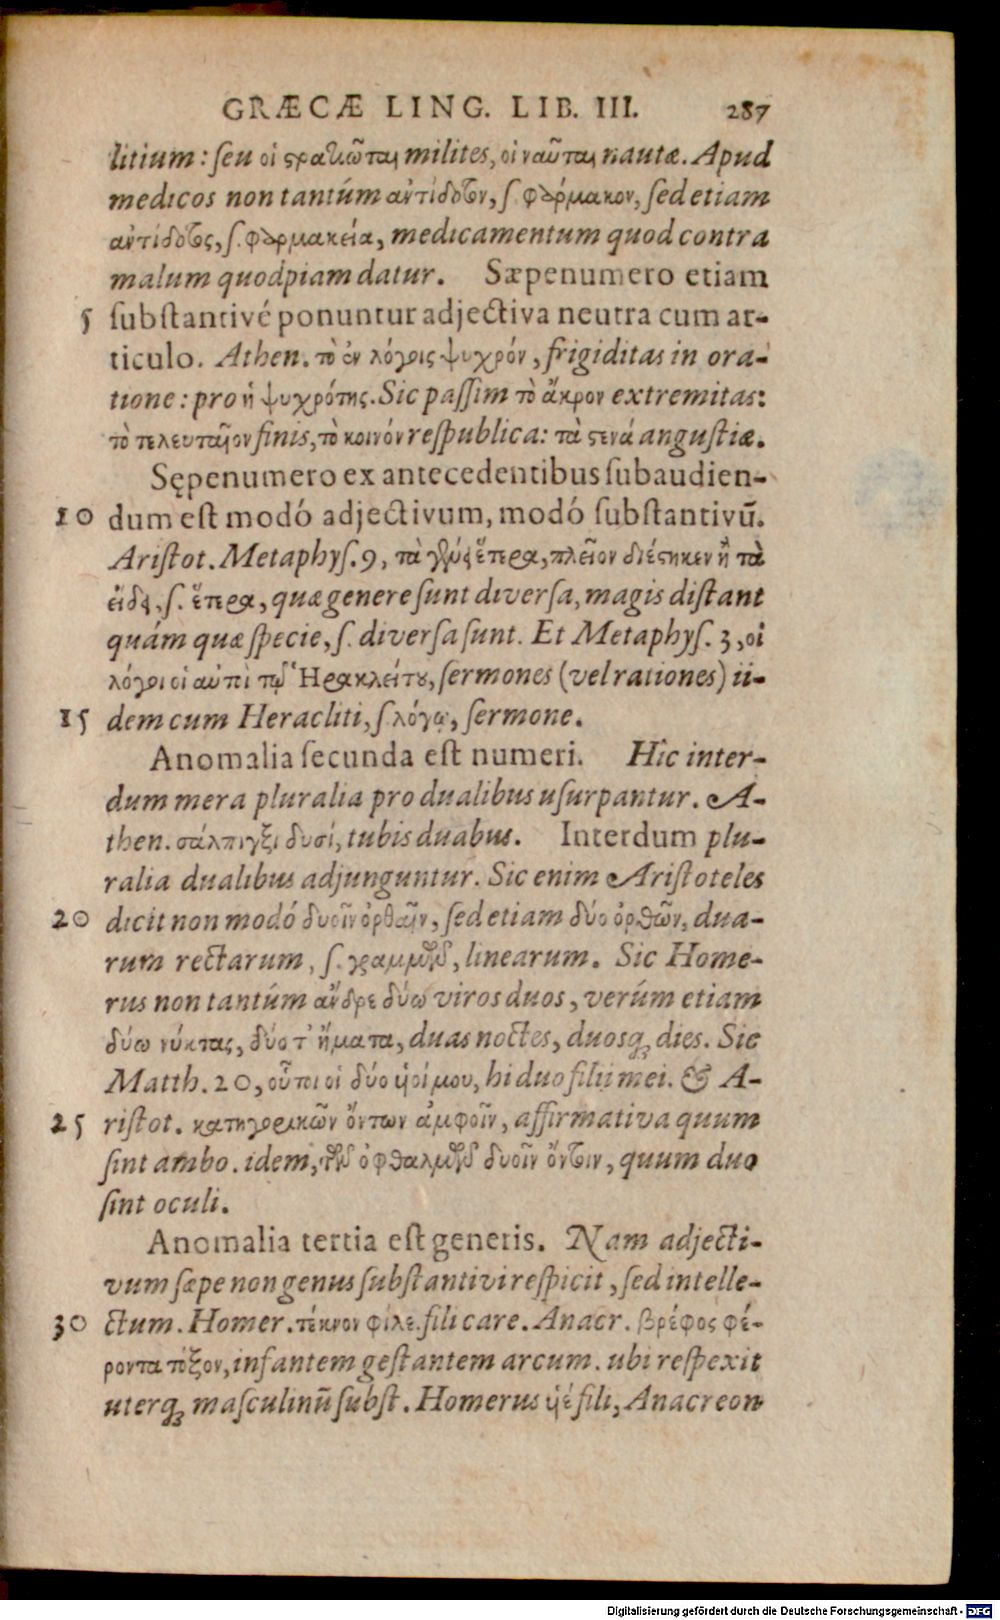 GRÆCÆ LING. LIB. III. 287
litium: ſeu οἱ ϛρατιῶται milites, οἱ ναῦται nautæ. Apud
medicos non tantúm ἀντίδοτον, ſ. φάρμακον, ſed etiam
ἀντίδοτος, ſ. φαρμακεία, medicamentum quod contra
malum quodpiam datur. Sæpenumero etiam
5 ſubſtantivé ponuntur adjectiva neutra cum ar-
ticulo. Athen. τὸ ἐν λόγοις ψυχρόν, frigiditas in ora-
tione: pro ἡ ψυχρότης. Sic paſſim τὸ ἄκρον extremitas:
τὸ τελευταῖον finis, τὸ κοινόν reſpublica: τὰ ϛενά anguſtiæ.
Sępenumero ex antecedentibus ſubaudien-
10 dum eſt modó adjectivum, modó ſubſtantivū.
Ariſtot. Metaphyſ. 9, τὰ γένει ἕτερα, πλεῖον διέϛηκεν ἢ τὰ
εἴδει, ſ. ἕτερα, quæ genere ſunt diverſa, magis diſtant
quám quæ ſpecie, ſ. diverſa ſunt. Et Metaphyſ. 3, οἱ
λόγοι οἱ αὐτοὶ τῷ Ἡρακλείτου, ſermones (vel rationes) ii-
15 dem cum Heracliti, ſ. λόγῳ, ſermone.
Anomalia ſecunda eſt numeri. Hîc inter-
dum mera pluralia pro dualibus uſurpantur. A-
then. σάλπιγξι δυσί, tubis duabus. Interdum plu-
ralia dualibus adjunguntur. Sic enim Ariſtoteles
20 dicit non modó δυοῖν ὀρθαῖν, ſed etiam δύο ὀρθῶν, dua-
rum rectarum, ſ. γραμμῶν, linearum. Sic Home-
rus non tantúm ἄνδρε δύω viros duos, verúm etiam
δύω νύκτας, δύο τ᾽ ἤματα, duas noctes, duosq́; dies. Sic
Matth. 20, οὗτοι οἱ δύο ὑοί μου, hi duo filii mei. & A-
25 riſtot. κατηγορικῶν ὄντων ἀμφοῖν, affirmativa quum
ſint ambo. idem, τῶν ὀφθαλμῶν δυοῖν ὄντοιν, quum duo
ſint oculi.
Anomalia tertia eſt generis. Nam adjecti-
vum ſæpe non genus ſubſtantivi reſpicit, ſed intelle-
30 ctum. Homer. τέκνον φίλε. fili care. Anacr. βρέφος φέ-
ροντα τόξον, infantem geſtantem arcum. ubi reſpexit
uterq́; maſculinū ſubſt. Homerus ὑέ fili, Anacreon
Digitalisierung gefördert durch die Deutsche Forschungsgemeinschaft - DFG